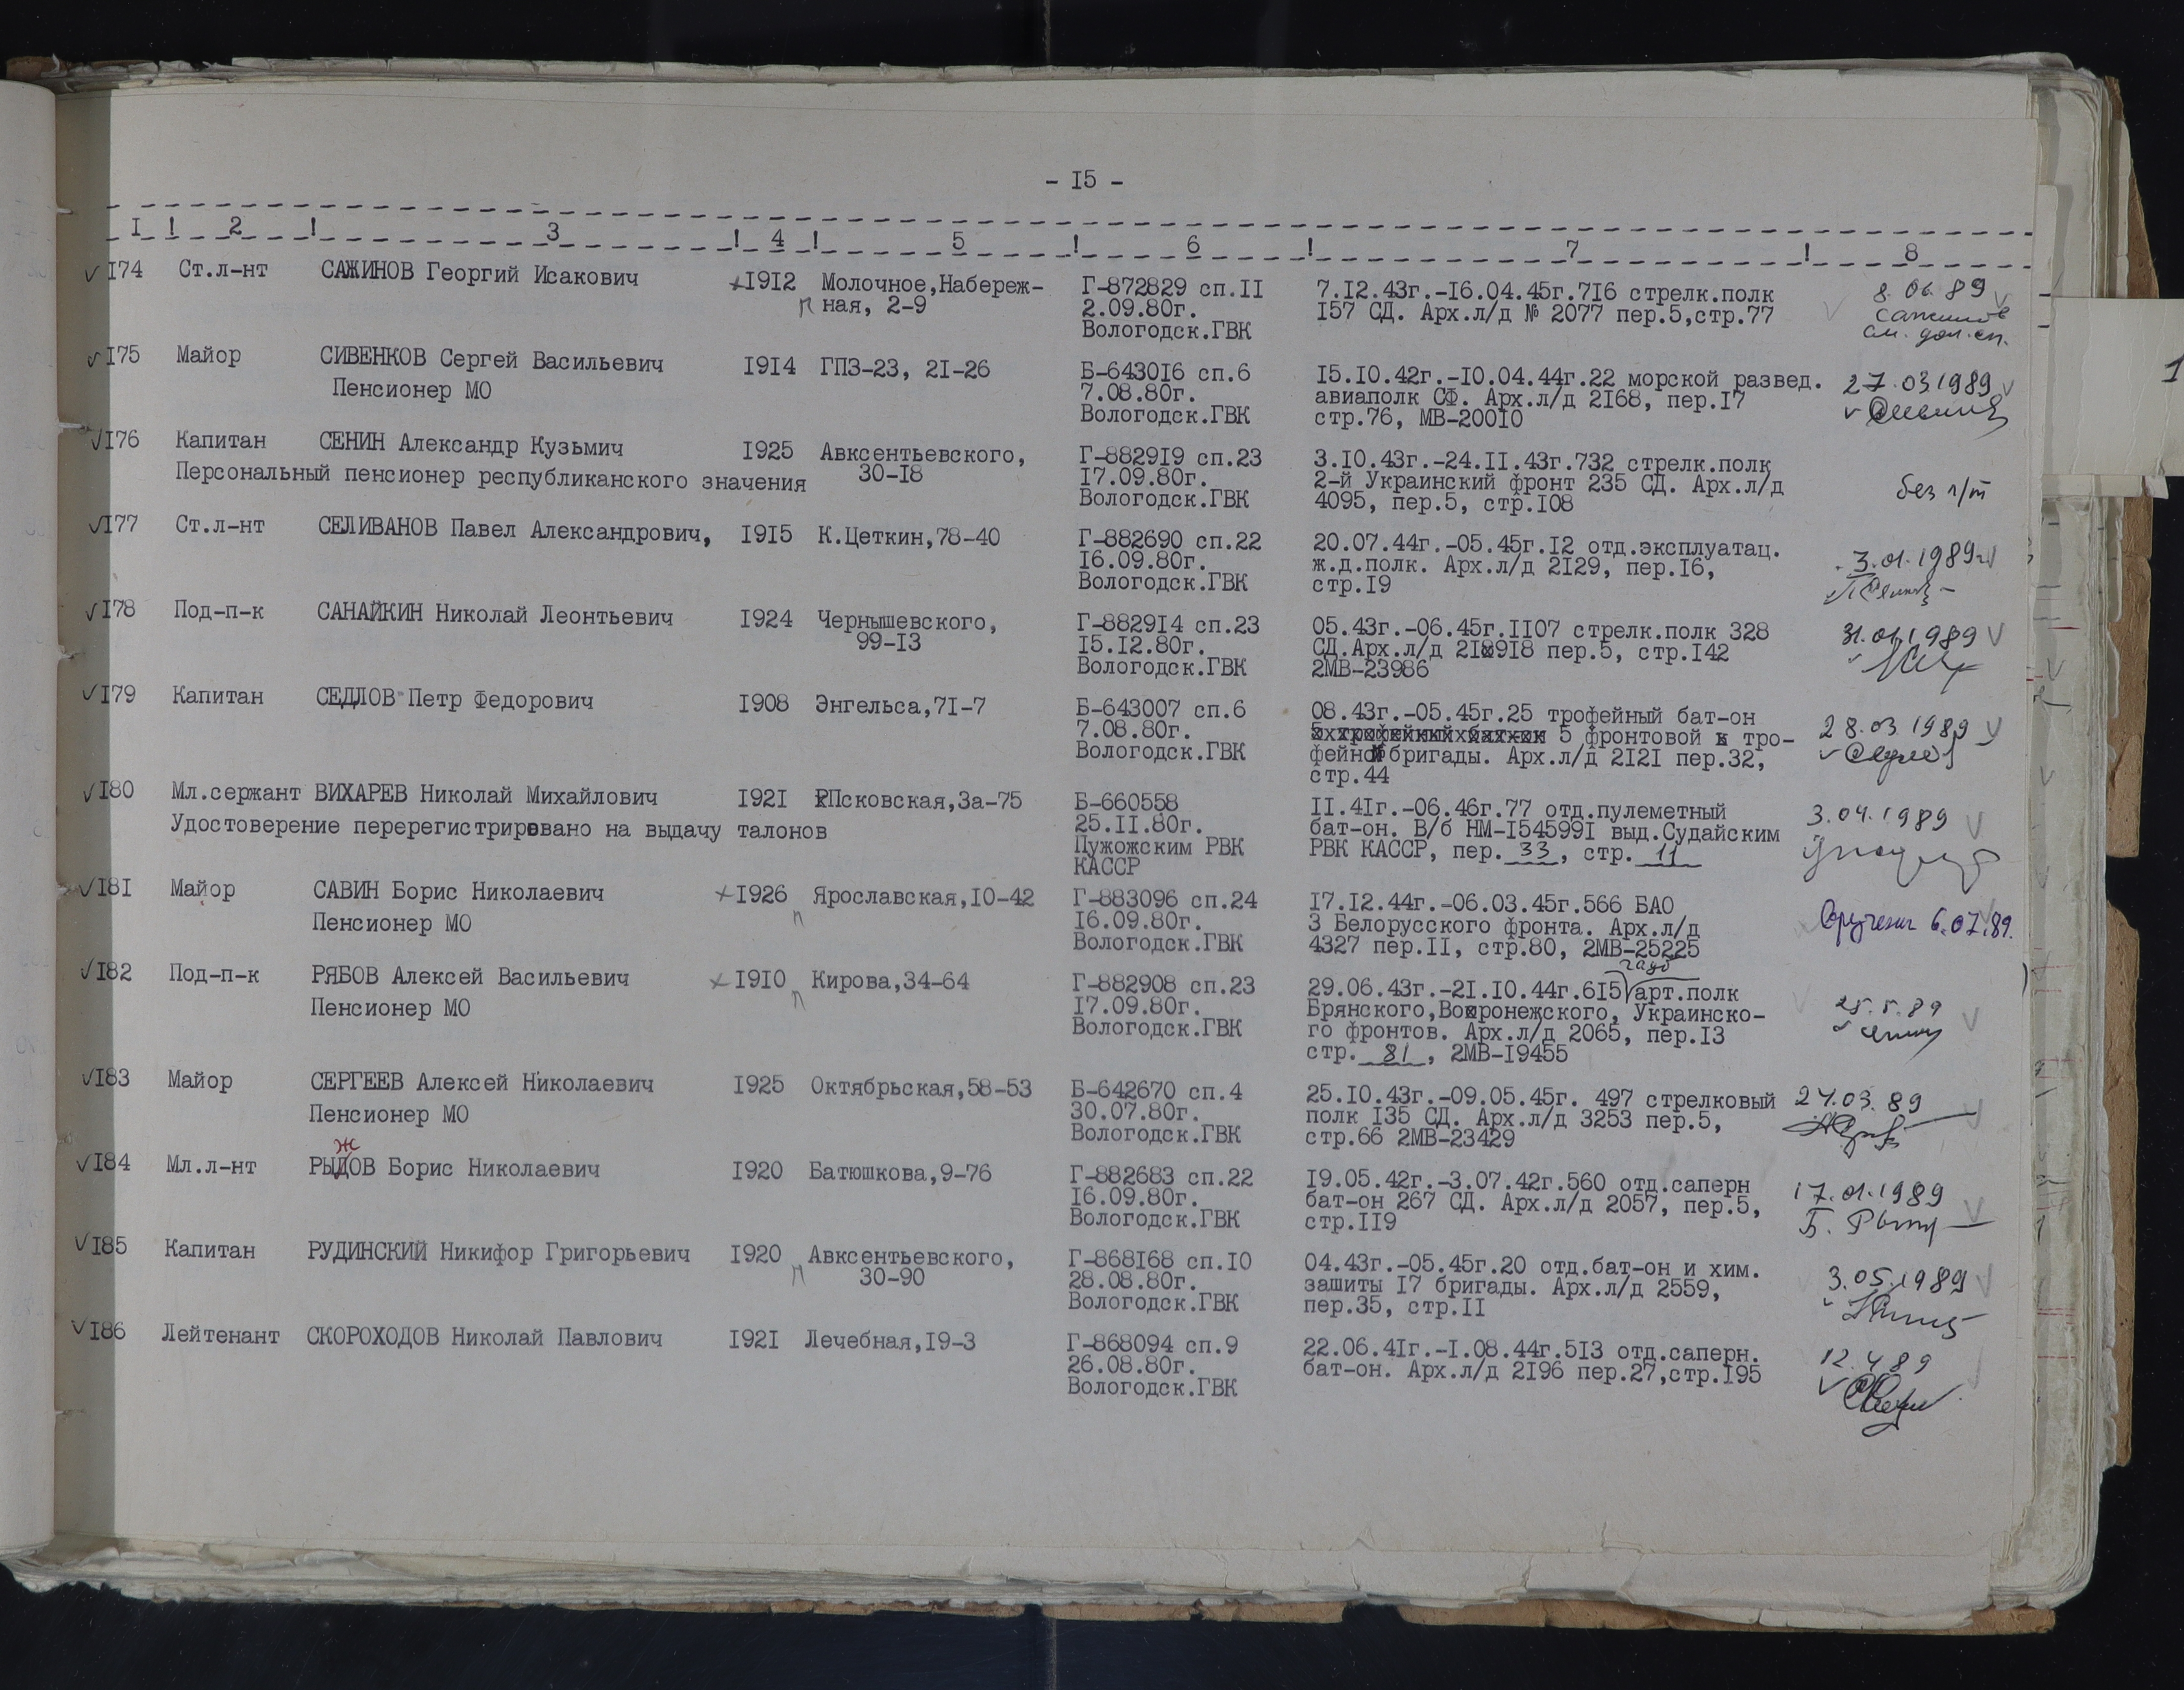 - I5 -
I ! 2 ! 3 ! 4 ! 5 ! 6 ! 7 ! 8
I74 Ст.л-нт САЖИНОВ Георгий Исакович I9I2 Молочное,Набереж- Г-872829 сп.II 7.I2.43г.-I6.04.45г.7I6 стрелк.полк 8.06.89
п ная, 2-9 2.09.80г. I57 СД. Арх.л/д № 2077 пер.5,стр.77 Сажинов
Вологодск.ГВК см. доп.сп.
I75 Майор СИВЕНКОВ Сергей Васильевич I9I4 ГПЗ-23, 2I-26 Б-6430I6 сп.6 I5.I0.42г.-I0.04.44г.22 морской развед. 27.03 1989
Пенсионер МО 7.08.80г. авиаполк СФ. Арх.л/д 2I68, пер.I7
Вологодск.ГВК стр.76, МВ-200I0
I76 Капитан СЕНИН Александр Кузьмич I925 Авксентьевского, Г-8829I9 сп.23 3.I0.43г.-24.II.43г.732 стрелк.полк
Персональный пенсионер республиканского значения 30-I8 I7.09.80г. 2-й Украинский фронт 235 СД. Арх.л/д без л/т
Вологодск.ГВК 4095, пер.5, стр.I08
I77 Ст.л-нт СЕЛИВАНОВ Павел Александрович, I9I5 К.Цеткин,78-40 Г-882690 сп.22 20.07.44г.-05.45г.I2 отд.эксплуатац. 3.01.1989г
I6.09.80г. ж.д.полк. Арх.л/д 2I29, пер.I6,
Вологодск.ГВК стр.I9
I78 Под-п-к САНАЙКИН Николай Леонтьевич I924 Чернышевского, Г-8829I4 сп.23 05.43г.-06.45г.II07 стрелк.полк 328 31.01.1989
99-I3 I5.I2.80г. СД.Арх.л/д 2I8918 пер.5, стр.I42
Вологодск.ГВК 2МВ-23986
I79 Капитан СЕДЛОВ Петр Федорович I908 Энгельса,7I-7 Б-643007 сп.6 08.43г.-05.45г.25 трофейный бат-он 28.03 1989
7.08.80г. 5 фронтовой тро-
Вологодск.ГВК фейной бригады. Арх.л/д 2I2I пер.32,
стр.44
I80 Мл.сержант ВИХАРЕВ Николай Михайлович I92I Псковская,3а-75 Б-660558 II.4Iг.-06.46г.77 отд.пулеметный 3.04.1989
Удостоверение перерегистрировано на выдачу талонов 25.II.80г. бат-он. В/б НМ-I54599I выд.Судайским
Пужожским РВК РВК КАССР, пер. 33, стр. 11
КАССР
I8I Майор САВИН Борис Николаевич I926 Ярославская,I0-42 Г-883096 сп.24 I7.I2.44г.-06.03.45г.566 БАО
Пенсионер МО п I6.09.80г. 3 Белорусского фронта. Арх.л/д 6.07.89.
Вологодск.ГВК 4327 пер.II, стр.80, 2МВ-25225
гауб
I82 Под-п-к РЯБОВ Алексей Васильевич I9I0 Кирова,34-64 Г-882908 сп.23 29.06.43г.-2I.I0.44г.6I5 арт.полк 25.5.89
Пенсионер МО п I7.09.80г. Брянского,Воронежского, Украинско-
Вологодск.ГВК го фронтов. Арх.л/д 2065, пер.I3
стр. 81, 2МВ-I9455
I83 Майор СЕРГЕЕВ Алексей Николаевич I925 Октябрьская,58-53 Б-642670 сп.4 25.I0.43г.-09.05.45г. 497 стрелковый 24.03.89
Пенсионер МО 30.07.80г. полк I35 СД. Арх.л/д 3253 пер.5,
Вологодск.ГВК стр.66 2МВ-23429
ж
I84 Мл.л-нт РЫДОВ Борис Николаевич I920 Батюшкова,9-76 Г-882683 сп.22 I9.05.42г.-3.07.42г.560 отд.саперн 17.01.1989
I6.09.80г. бат-он 267 СД. Арх.л/д 2057, пер.5,
Вологодск.ГВК стр.II9
I85 Капитан РУДИНСКИЙ Никифор Григорьевич I920 Авксентьевского, Г-868I68 сп.I0 04.43г.-05.45г.20 отд.бат-он и хим. 3.05.1989
п 30-90 28.08.80г. зашиты I7 бригады. Арх.л/д 2559,
Вологодск.ГВК пер.35, стр.II
I86 Лейтенант СКОРОХОДОВ Николай Павлович I92I Лечебная,I9-3 Г-868094 сп.9 22.06.4Iг.-I.08.44г.5I3 отд.саперн. 12.4.89
26.08.80г. бат-он. Арх.л/д 2I96 пер.27,стр.I95
Вологодск.ГВК
1